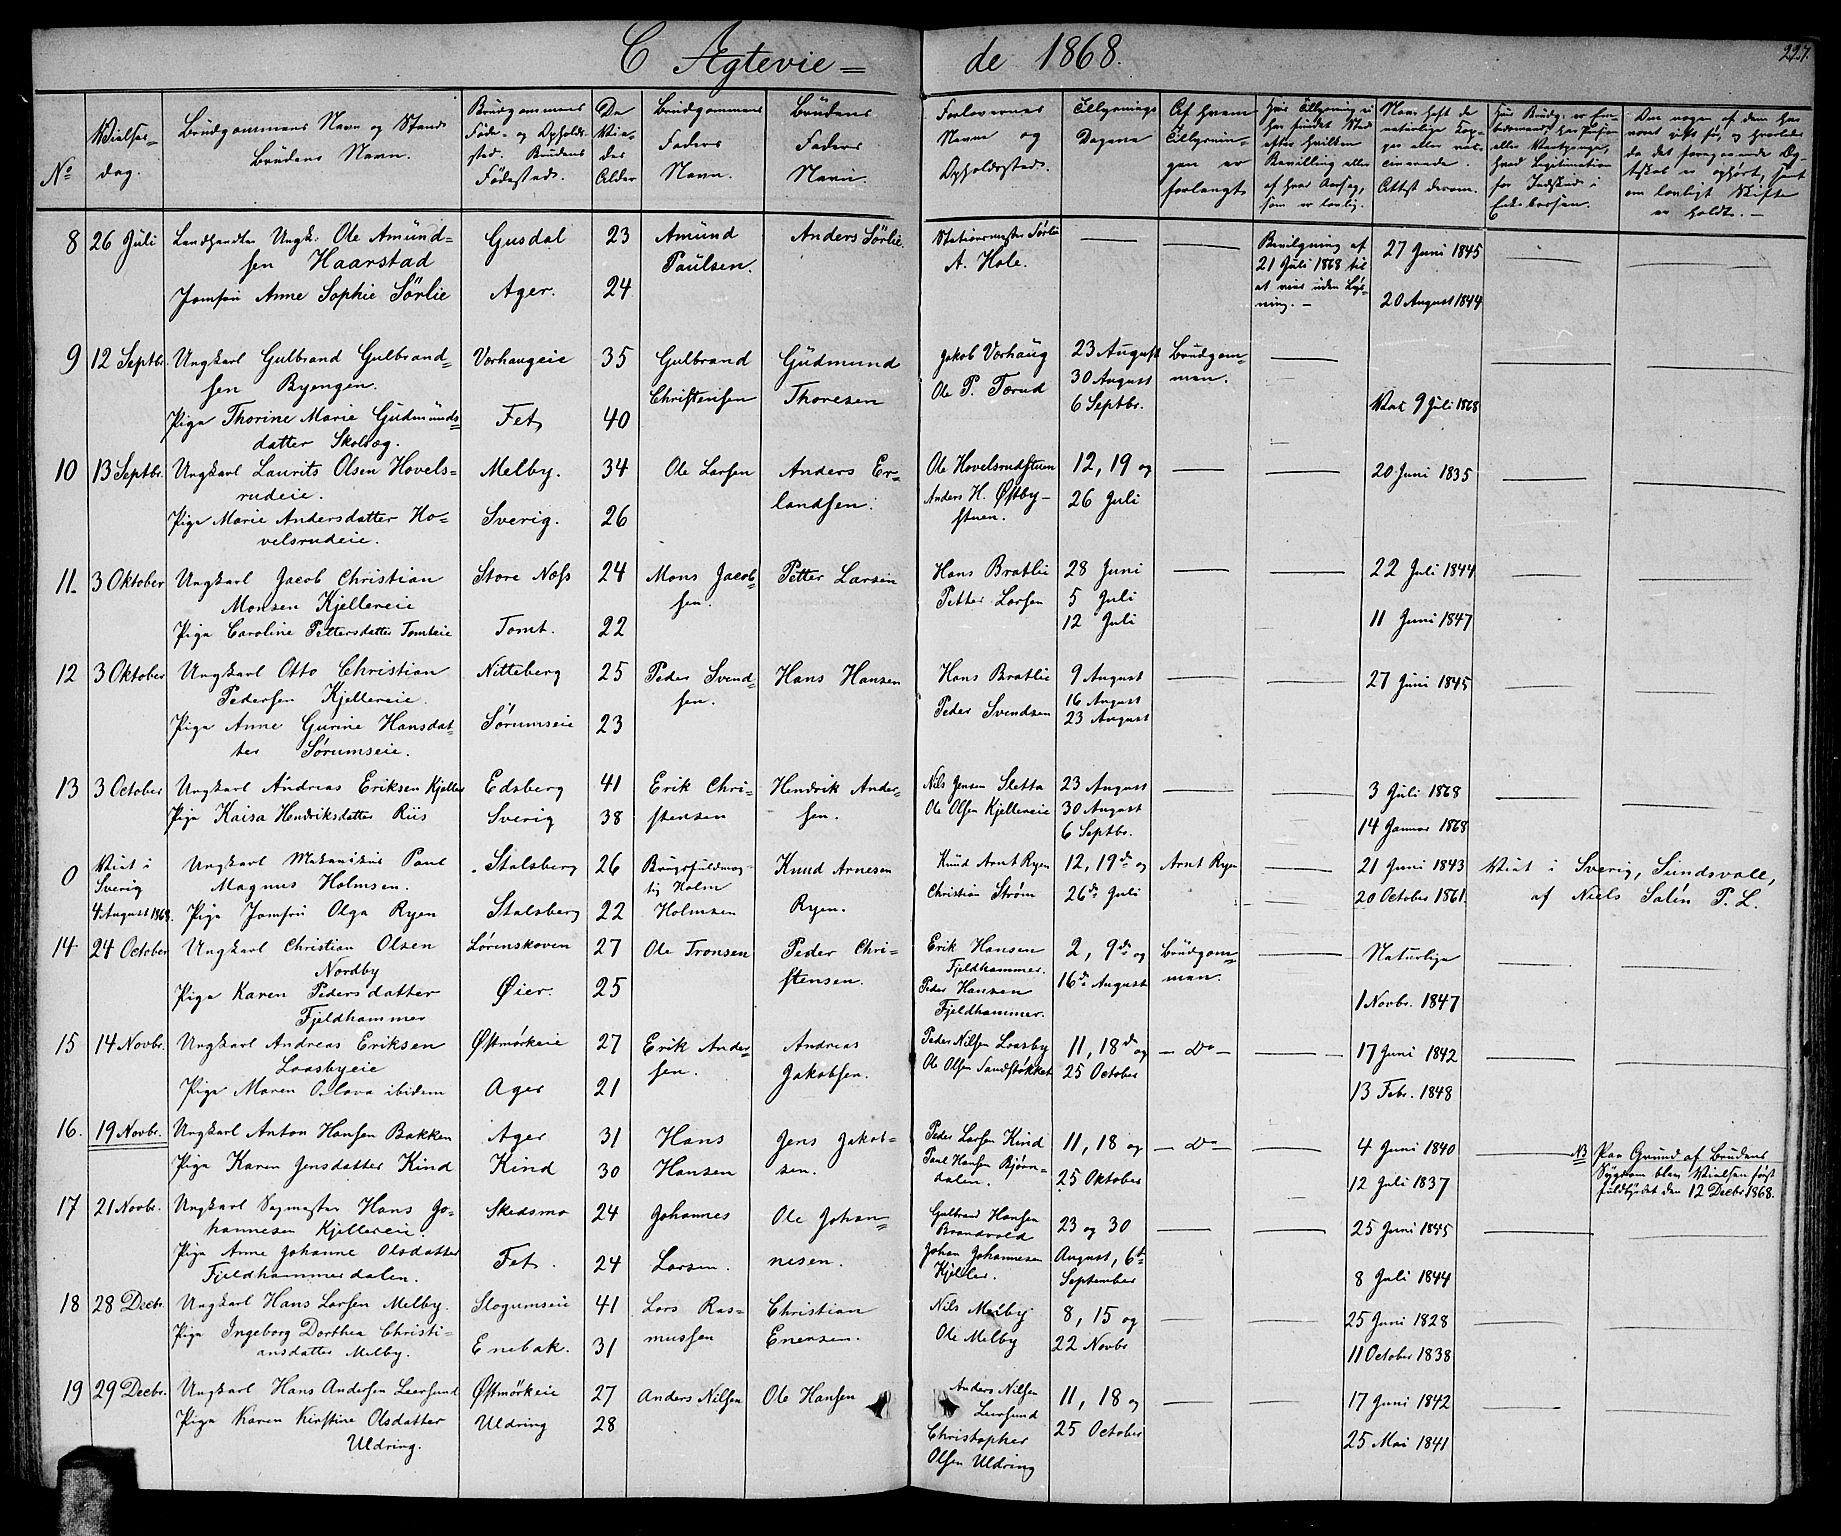 C Agtevie=
de 1868.
227.
No
Vielses-
dag.
Brudgommens Navn og Stand.
Brudens Navn.
Brudgommens
Føde- og Opholds-
sted. Brudens
Fødested.
De
Vie-
des
Alder
Brudgommens
Faders
Navn.
Brudens
Faders
Navn.
Forlovernes
Navn og
Opholdssted.
Tillysnings
Dagene
Af hvem
Tillysnin-
gen er
forlangt
Naar havt de
naturlige Kop-
per eller vac-
cinerede.
Attest derom.
8 26 Juli
Landhandler Ungk. Ole Amünd=
sen Haarstad
Jomfru Anne Sophie Sörlie
Gusdal
Ager.
23
24
Amünd
Paulsen.
Anders Sörlie
Stationsmester Sørlie
A. Hole.
Bevilgning af
21 Juli 1868 til
at vies uden Lys-
ning. —
27 Juni 1845
20 August 1844
9 12 Septbr.
Ungkarl Gulbrand Gulbrand=
sen Byengen.
Pige Thorine Marie Gudmünds=
datter Skoldag.
Vorhaugeie
Fet
35
40
Gulbrand
Christensen
Güdmund
Thoresen
Jakob Vorhaüg
Ole P. Tærud
23 August
30 August
6 Septbr.
Brudgom=
men.
Vac 9 Juli 1868
10 13 Septbr.
Ungkarl Laurits Olsen Hovels=
rudeie.
Pige Marie Andersdatter Ho=
velsrudeie.
Melby.
Sverig.
34
26
Ole Larsen
Anders Er-
landsen.
Ole Hovelsrudstuen
Anders H. Østby-
stuen.
12, 19 og
26 Juli
20 Juni 1835
11. 3 Oktober
Ungkarl Jacob Christian
Monsen Kjellereie
Pige Caroline Pettersdatter Tomteie
Store Næss
Tomt.
24
22
Mons Jacob=
sen.
Petter Larsen
Hans Bratlie
Petter Larsen
28 Juni
5 Juli
12 Juli
22 Juli 1844
11 Juni 1847
12 3 Oktober
Ungkarl Otto Christian
Pedersen Kjellereie.
Pige Anne Gurine Hansdat-
ter Sørumseie.
Nitteberg
Sørumseie
25
23
Peder Svend=
sen.
Hans Hansen
Hans Bratlie
Peder Svendsen
9 August
16 August
23 August
27 Juni 1845
13 3 October
Ungkarl Andreas Eriksen Kjeller
Pige Kaisa Hendriksdatter Riis
Edsberg
Sverig
41
38
Erik Chri-
stensen
Hendrik Ander-
sen.
Nils Jensen Sletta
Ole Olsen Kjellereie
23 August
30 August
6 Septbr.
3 Juli 1868
14 Januar 1868
0 Viet i
Sverig
4 August 1868.
Ungkarl Mekanikus Paul
Magnus Holmsen.
Pige Jomfru Olga Ryen
Stalsberg
Stalsberg
26
22
Brugsfuldmæg-
tig Holm
Holmsen
Knud Arnesen
Ryen.
Knüd Arnt Ryen
Christian Strøm
12, 19de og
26de Juli
Arnt Ryen
21 Juni 1843
20 October 1861.
Viet i Sverig, Sundsvall,
af Niels Salén P. L.
14. 24 October
Ungkarl Christian Olsen
Nordby
Pige Karen Pedersdatter
Fjeldhammer
Lørenskoven
Øier.
27
25
Ole Tronsen
Peder Chri-
stensen.
Erik Hansen
Fjeldhammer.
Peder Hansen
Fjeldhammer.
2, 9de og
16de August
Brüdgom=
men.
Naturlige
1 Novbr. 1847
15 14 Novbr.
Ungkarl Andreas Eriksen
Loasbyeie
Pige Maren Olava ibidem
Østmørkeie
Ager
27
21
Erik Ander-
sen.
Andreas
Jakobsen.
Peder Nilsen Loasby
Ole Olsen Sandstøkket
11, 18de og
25 October
— Do —
17 Juni 1842
13 Febr. 1848
16. 19 Novbr.
Ungkarl Anton Hansen Bakken
Pige Karen Jensdatter Kind
Ager
Kind
31
30
Hans
Hansen
Jens Jakob-
sen.
Peder Larsen Kind
Paul Hansen Bjørn-
dalen.
11, 18 og
25 Oktober
— Do —
4 Juni 1840
12 Juli 1837
NB Paa Grund af Brudens
Sygdom blev Vielsen først
fuldbyrdet den 12 Decbr. 1868.
17 21 Novbr.
Ungkarl Sagmester Hans Jo-
hannesen Kjellereie.
Pige Anne Johanne Olsdatter
Fjeldhammerdalen.
Skedsmo
Fet.
24
24
Johannes
Larsen.
Ole Johan=
nesen.
Gulbrand Hansen
Brandvold
Johan Johannesen
Kjeller.
23 og 30
August, 6te
September
25 Juni 1845
8 Juli 1844
18 28 Decbr.
Ungkarl Hans Larsen Melby.
Pige Ingeborg Dorthea Christi-
ansdatter Melby.
Slogumseie
Enebak.
41
31
Lars Ras-
mussen
Christian
Enersen.
Nils Melby
Ole Melby
8, 15 og
22 Novbr
25 Juni 1828
11 October 1838
19 29 Decbr.
Ungkarl Hans Andersen Leersund
Pige Karen Kirstine Olsdatter
Uldring.
Østmørkeie
Uldring
27
28
Anders Nilsen
Ole Hansen
Anders Nilsen
Leersund
Christopher
Olsen Uldring
11, 18 og
25 October
17 Juni 1842
25 Mai 1841